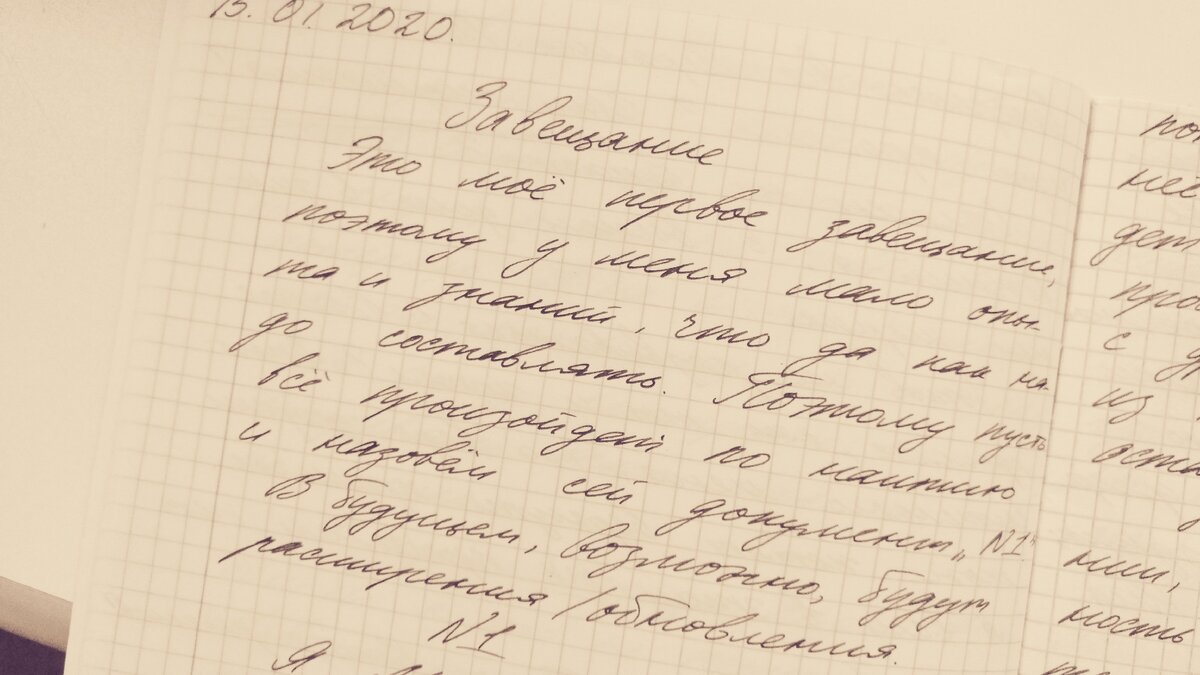 15.01.2020.
Завещание
Это моё первое завещание,
поэтому у меня мало опы-
та и знаний, что да как на-
до составлять. Поэтому пусть
всё произойдет по наитию
и назовём сей документ „N1“
В будущем, возможно, будут
расширения / обновления.
N1
Я
неё
дет
про
с
из
оста
нии,
ность